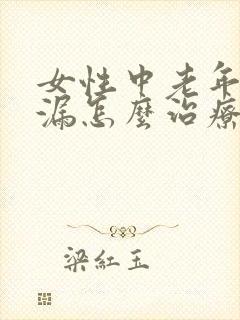 女性中老年
漏怎麼治療
梁紅玉